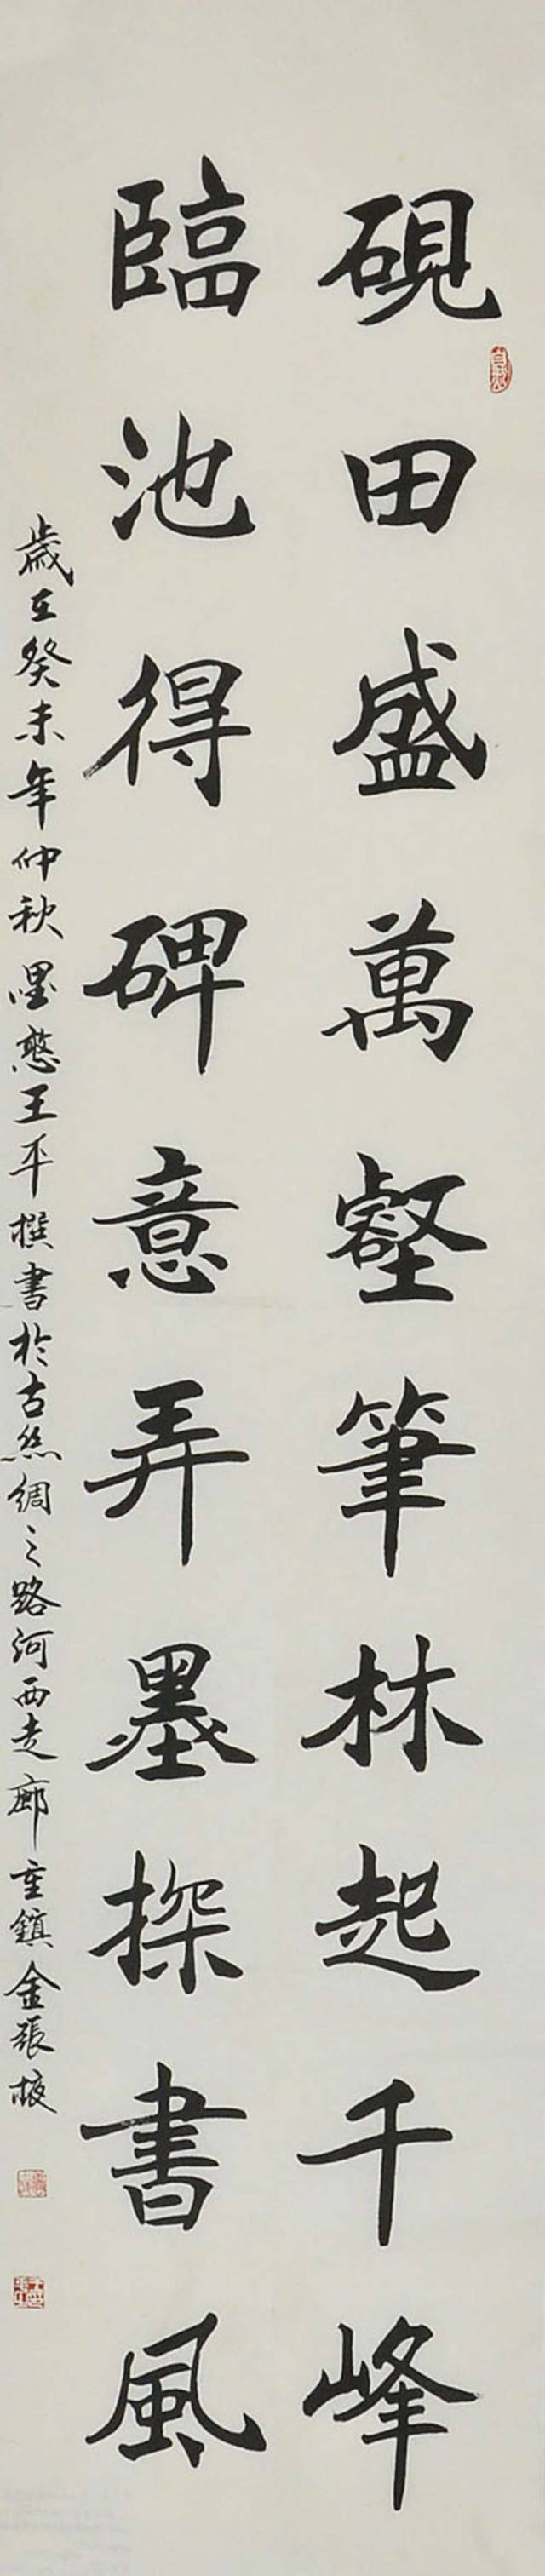 硯田盛萬壑筆林起千峰
臨池得碑意弄墨探書風
歲在癸未年仲秋墨憨王平撰書於古絲綢之路河西走廊重鎮金張掖